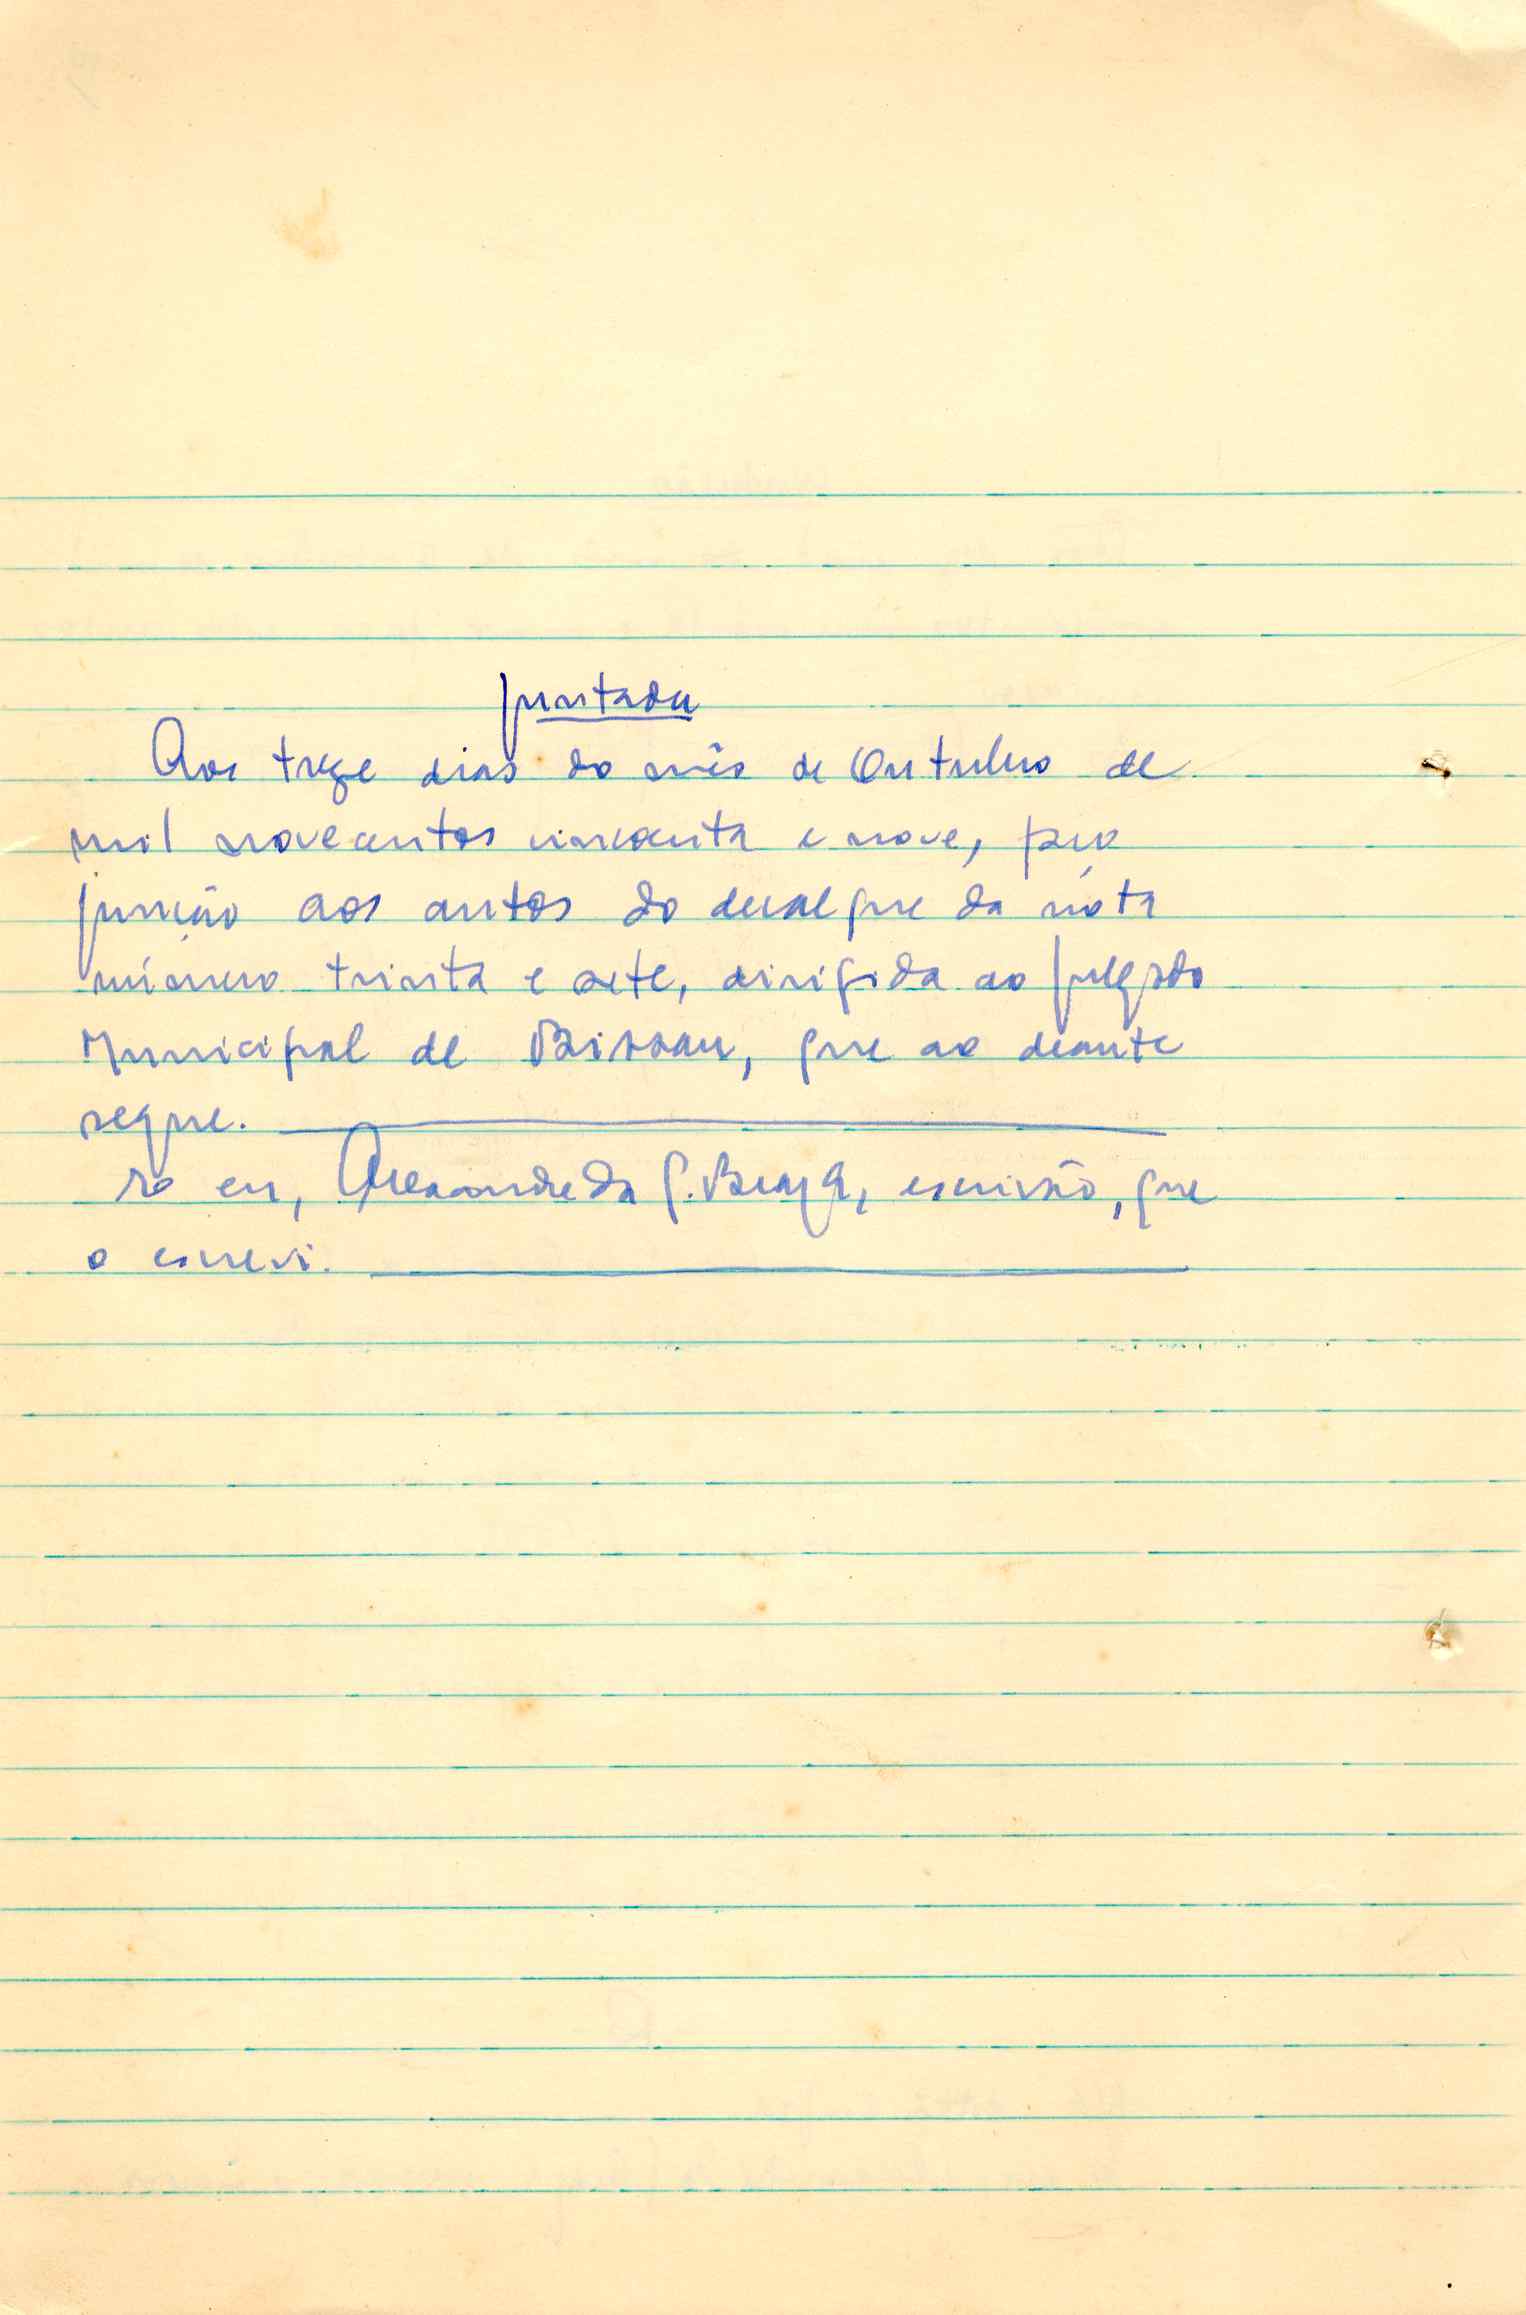 Juntada
Aos treze dias do mês de Outubro de
mil novecentos cincoenta e nove, faço
junção aos autos do decalque da nóta
número trinta e sete, dirigida ao Julgado
Municipal de Bissau, que ao deante
segue.
E eu, Alexandre da G. Braga, escrivão, que
o escrevi.